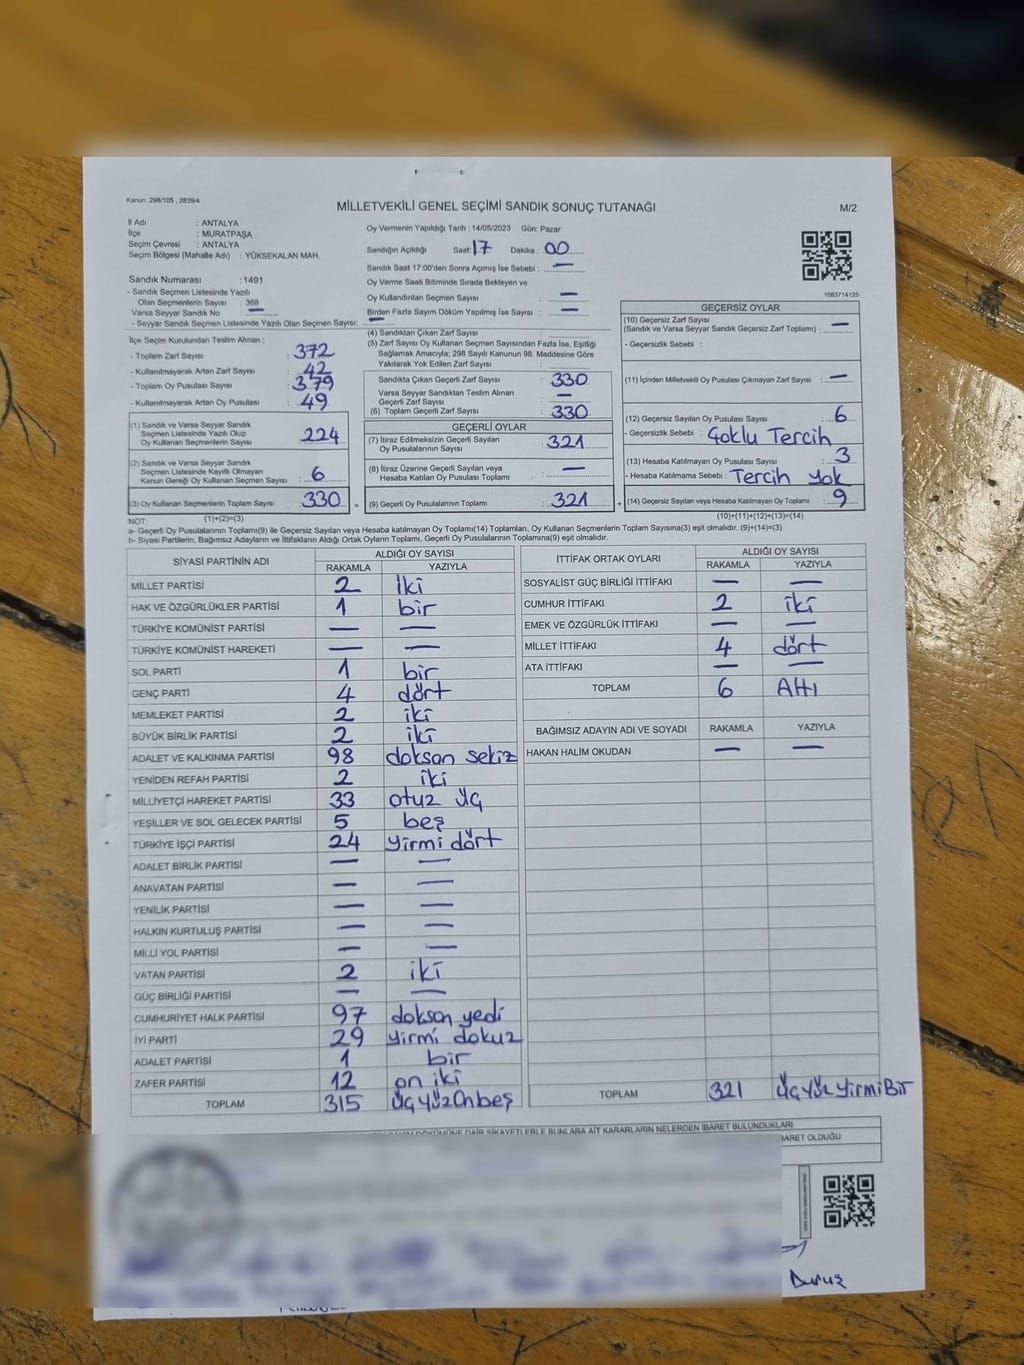 Kanun: 298/105 , 2839/4
MİLLETVEKİLİ GENEL SEÇİMİ SANDIK SONUÇ TUTANAĞI
M/2
İl Adı : ANTALYA
İlçe : MURATPAŞA
Seçim Çevresi : ANTALYA
Seçim Bölgesi (Mahalle Adı) : YÜKSEKALAN MAH.
Oy Vermenin Yapıldığı Tarih : 14/05/2023 Gün: Pazar
Sandığın Açıldığı Saat: 17 Dakika : 00
Sandık Saat 17:00'den Sonra Açımış İse Sebebi : —
Oy Verme Saati Bitiminde Sırada Bekleyen ve
Oy Kullandırılan Seçmen Sayısı : —
Birden Fazla Sayım Döküm Yapılmış İse Sayısı : —
1083714125
Sandık Numarası : 1491
- Sandık Seçmen Listesinde Yazılı
Olan Seçmenlerin Sayısı : 368
Varsa Seyyar Sandık No —
- Seyyar Sandık Seçmen Listesinde Yazılı Olan Seçmen Sayısı: —
İlçe Seçim Kurulundan Teslim Alınan ;
- Toplam Zarf Sayısı : 372
- Kullanılmayarak Artan Zarf Sayısı : 42
- Toplam Oy Pusulası Sayısı : 379
- Kullanılmayarak Artan Oy Pusulası : 49
(1) Sandık ve Varsa Seyyar Sandık
Seçmen Listesinde Yazılı Olup
Oy Kullanan Seçmenlerin Sayısı : 224
(2) Sandık ve Varsa Seyyar Sandık
Seçmen Listesinde Kayıtlı Olmayan
Kanun Gereği Oy Kullanan Seçmen Sayısı : 6
(3) Oy Kullanan Seçmenlerin Toplam Sayısı : 330
(1)+(2)=(3)
(4) Sandıktan Çıkan Zarf Sayısı :
(5) Zarf Sayısı Oy Kullanan Seçmen Sayısından Fazla İse, Eşitliği
Sağlamak Amacıyla; 298 Sayılı Kanunun 98. Maddesine Göre
Yakılarak Yok Edilen Zarf Sayısı :
Sandıkta Çıkan Geçerli Zarf Sayısı : 330
Varsa Seyyar Sandıktan Teslim Alınan
Geçerli Zarf Sayısı : —
(6) Toplam Geçerli Zarf Sayısı : 330
GEÇERLİ OYLAR
(7) İtiraz Edilmeksizin Geçerli Sayılan
Oy Pusulalarının Sayısı : 321
(8) İtiraz Üzerine Geçerli Sayılan veya
Hesaba Katılan Oy Pusulası Toplamı : —
(9) Geçerli Oy Pusulalarının Toplamı : 321
GEÇERSİZ OYLAR
(10) Geçersiz Zarf Sayısı
(Sandık ve Varsa Seyyar Sandık Geçersiz Zarf Toplamı) : —
- Geçersizlik Sebebi :
(11) İçinden Milletvekili Oy Pusulası Çıkmayan Zarf Sayısı : —
(12) Geçersiz Sayılan Oy Pusulası Sayısı : 6
- Geçersizlik Sebebi : Çoklu Tercih
(13) Hesaba Katılmayan Oy Pusulası Sayısı : 3
- Hesaba Katılmama Sebebi : Tercih yok
(14) Geçersiz Sayılan veya Hesaba Katılmayan Oy Toplamı : 9
(10)+(11)+(12)+(13)=(14)
NOT:
a- Geçerli Oy Pusulalarının Toplamı(9) ile Geçersiz Sayılan veya Hesaba katılmayan Oy Toplamı(14) Toplamları, Oy Kullanan Seçmenlerin Toplam Sayısına(3) eşit olmalıdır. (9)+(14)=(3)
b- Siyasi Partilerin, Bağımsız Adayların ve İttifakların Aldığı Ortak Oyların Toplamı, Geçerli Oy Pusulalarının Toplamına(9) eşit olmalıdır.
SİYASİ PARTİNİN ADI ALDIĞI OY SAYISI
RAKAMLA YAZIYLA
MİLLET PARTİSİ 2 iki
HAK VE ÖZGÜRLÜKLER PARTİSİ 1 bir
TÜRKİYE KOMÜNİST PARTİSİ — —
TÜRKİYE KOMÜNİST HAREKETİ — —
SOL PARTİ 1 bir
GENÇ PARTİ 4 dört
MEMLEKET PARTİSİ 2 iki
BÜYÜK BİRLİK PARTİSİ 2 iki
ADALET VE KALKINMA PARTİSİ 98 doksan sekiz
YENİDEN REFAH PARTİSİ 2 iki
MİLLİYETÇİ HAREKET PARTİSİ 33 otuz üç
YEŞİLLER VE SOL GELECEK PARTİSİ 5 beş
TÜRKİYE İŞÇİ PARTİSİ 24 yirmi dört
ADALET BİRLİK PARTİSİ — —
ANAVATAN PARTİSİ — —
YENİLİK PARTİSİ — —
HALKIN KURTULUŞ PARTİSİ — —
MİLLİ YOL PARTİSİ — —
VATAN PARTİSİ 2 iki
GÜÇ BİRLİĞİ PARTİSİ — —
CUMHURİYET HALK PARTİSİ 97 doksan yedi
İYİ PARTİ 29 yirmi dokuz
ADALET PARTİSİ 1 bir
ZAFER PARTİSİ 12 on iki
TOPLAM 315 ÜçYüzOnbeş
İTTİFAK ORTAK OYLARI ALDIĞI OY SAYISI
RAKAMLA YAZIYLA
SOSYALİST GÜÇ BİRLİĞİ İTTİFAKI — —
CUMHUR İTTİFAKI 2 iki
EMEK VE ÖZGÜRLÜK İTTİFAKI — —
MİLLET İTTİFAKI 4 dört
ATA İTTİFAKI — —
TOPLAM 6 Altı
BAĞIMSIZ ADAYIN ADI VE SOYADI RAKAMLA YAZIYLA
HAKAN HALİM OKUDAN — —
TOPLAM 321 ÜçYüzYirmiBir
DÖKÜMÜNE DAİR ŞİKAYETLERLE BUNLARA AİT KARARLARIN NELERDEN İBARET BULUNDUKLARI
İBARET OLDUĞU